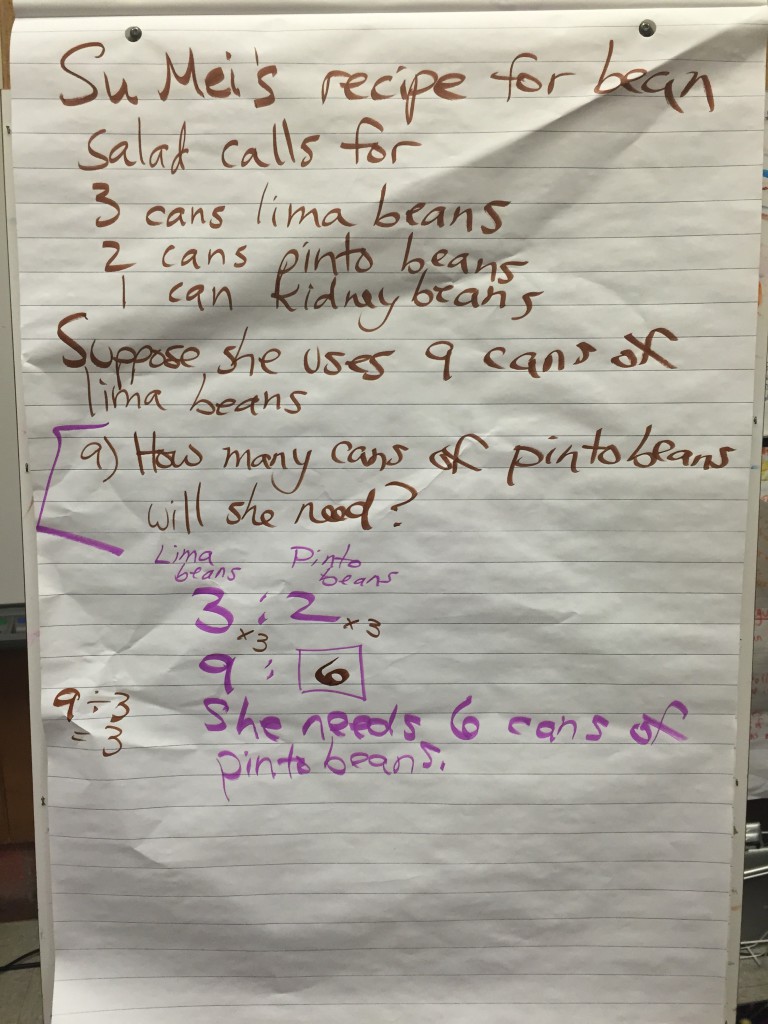 Su Mei's recipe for bean
Salad calls for
3 cans lima beans
2 cans pinto beans
1 can kidney beans
Suppose she uses 9 cans of
lima beans
a) How many cans of pinto beans
will she need?
Lima beans Pinto beans
3 : 2
×3 ×3
9 : 6
9 ÷ 3
= 3
She needs 6 cans of
pinto beans.